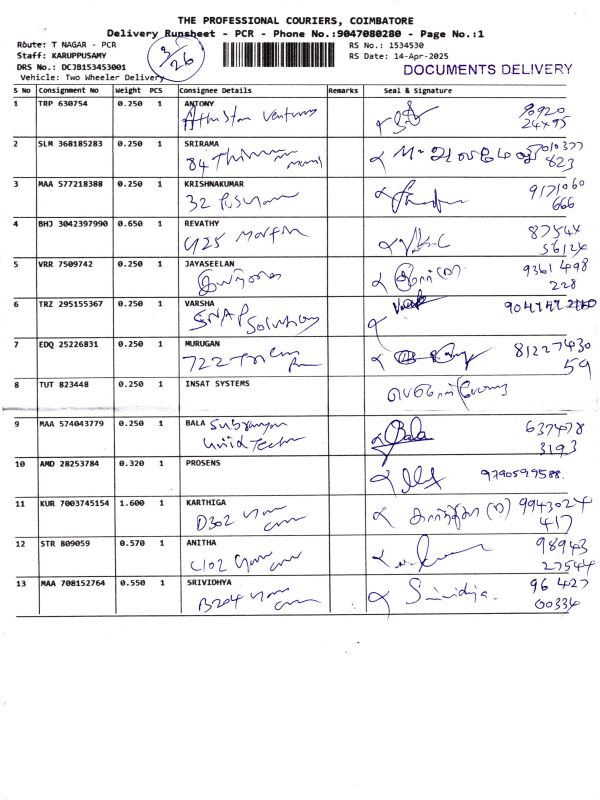 THE PROFESSIONAL COURIERS, COIMBATORE
Delivery Runsheet - PCR - Phone No.:9047080280 - Page No.:1
Route: T NAGAR - PCR
3/26
RS No.: 1534530
Staff: KARUPPUSAMY
RS Date: 14-Apr-2025
DRS No.: DCJB153453001
DOCUMENTS DELIVERY
Vehicle: Two Wheeler Delivery
S No Consignment No Weight PCS Consignee Details Remarks Seal & Signature
1 TRP 630754 0.250 1 ANTONY
2 SLM 368185283 0.250 1 SRIRAMA
84 823
3 MAA 577218388 0.250 1 KRISHNAKUMAR 9171060
32 666
4 BHJ 3042397990 0.650 1 REVATHY
5 VRR 7509742 0.250 1 JAYASEELAN 9361498
228
6 TRZ 295155367 0.250 1 VARSHA
SNAP Solutions
7 EDQ 25226831 0.250 1 MURUGAN 81227430
722 59
8 TUT 823448 0.250 1 INSAT SYSTEMS
9 MAA 574043779 0.250 1 BALA Bala 637478
3193
10 AMD 28253784 0.320 1 PROSENS 9790599588
11 KUR 7003745154 1.600 1 KARTHIGA 9943024
D302 417
12 STR 809059 0.570 1 ANITHA 98943
C102 27544
13 MAA 708152764 0.550 1 SRIVIDHYA Srividya. 96 427
B204 00334